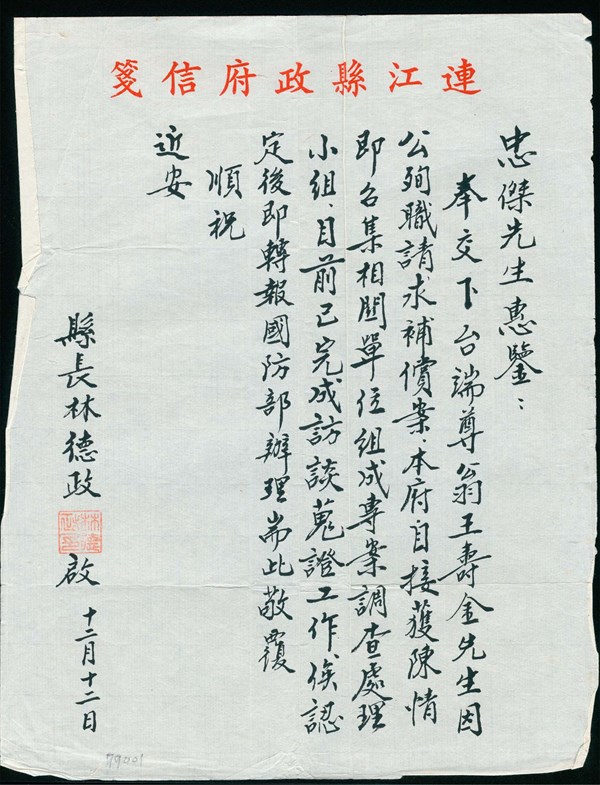 連江縣政府信箋
忠傑先生惠鑒：
奉交下台端尊翁王壽金先生因
公殉職請求補償案、本府自接獲陳情
即召集相關單位組成專案調查處理
小組、目前已完成訪談蒐證工作、俟認
定後即轉報國防部辦理耑此敬覆
順祝
近安
縣長林德政
林德政印
啟
十二月十二日